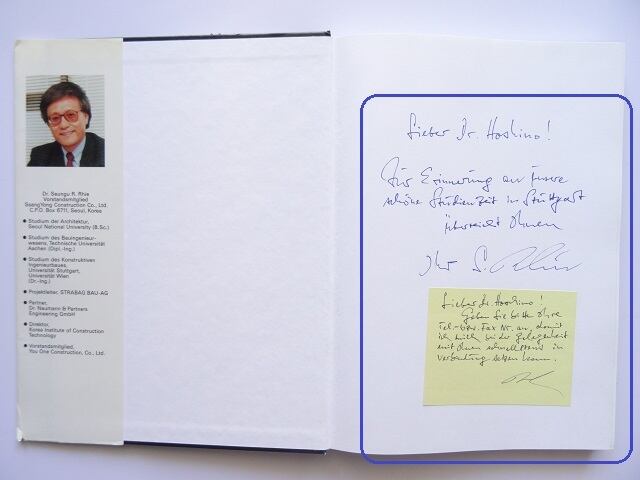 Dr. Seungu R. Rhie
Vorstandsmitglied
SsangYong Construction Co., Ltd.
C.P.O. Box 6711, Seoul, Korea
● Studium der Architektur,
Seoul National University (B.Sc.)
● Studium des Bauingenieur-
wesens, Technische Universität
Aachen (Dipl.-Ing.)
● Studium des Konstruktiven
Ingenieurbaues,
Universität Stuttgart,
Universität Wien
(Dr.-Ing.)
● Projektleiter, STRABAG BAU-AG
● Partner,
Dr. Naumann & Partners
Engineering GmbH
● Direktor,
Korea Institute of Construction
Technology
● Vorstandsmitglied,
You One Construction, Co., Ltd.
Lieber Dr. Hoshino!
Zur Erinnerung an unsere
schöne Studienzeit in Stuttgart
überreicht Ihnen
Ihr S. Rhie
Lieber Dr. Hoshino!
Geben Sie bitte Ihre
Tel.- bzw. Fax Nr. an, damit
ich mich bei der Gelegenheit
mit Ihnen schnellstens in
Verbindung setzen kann.